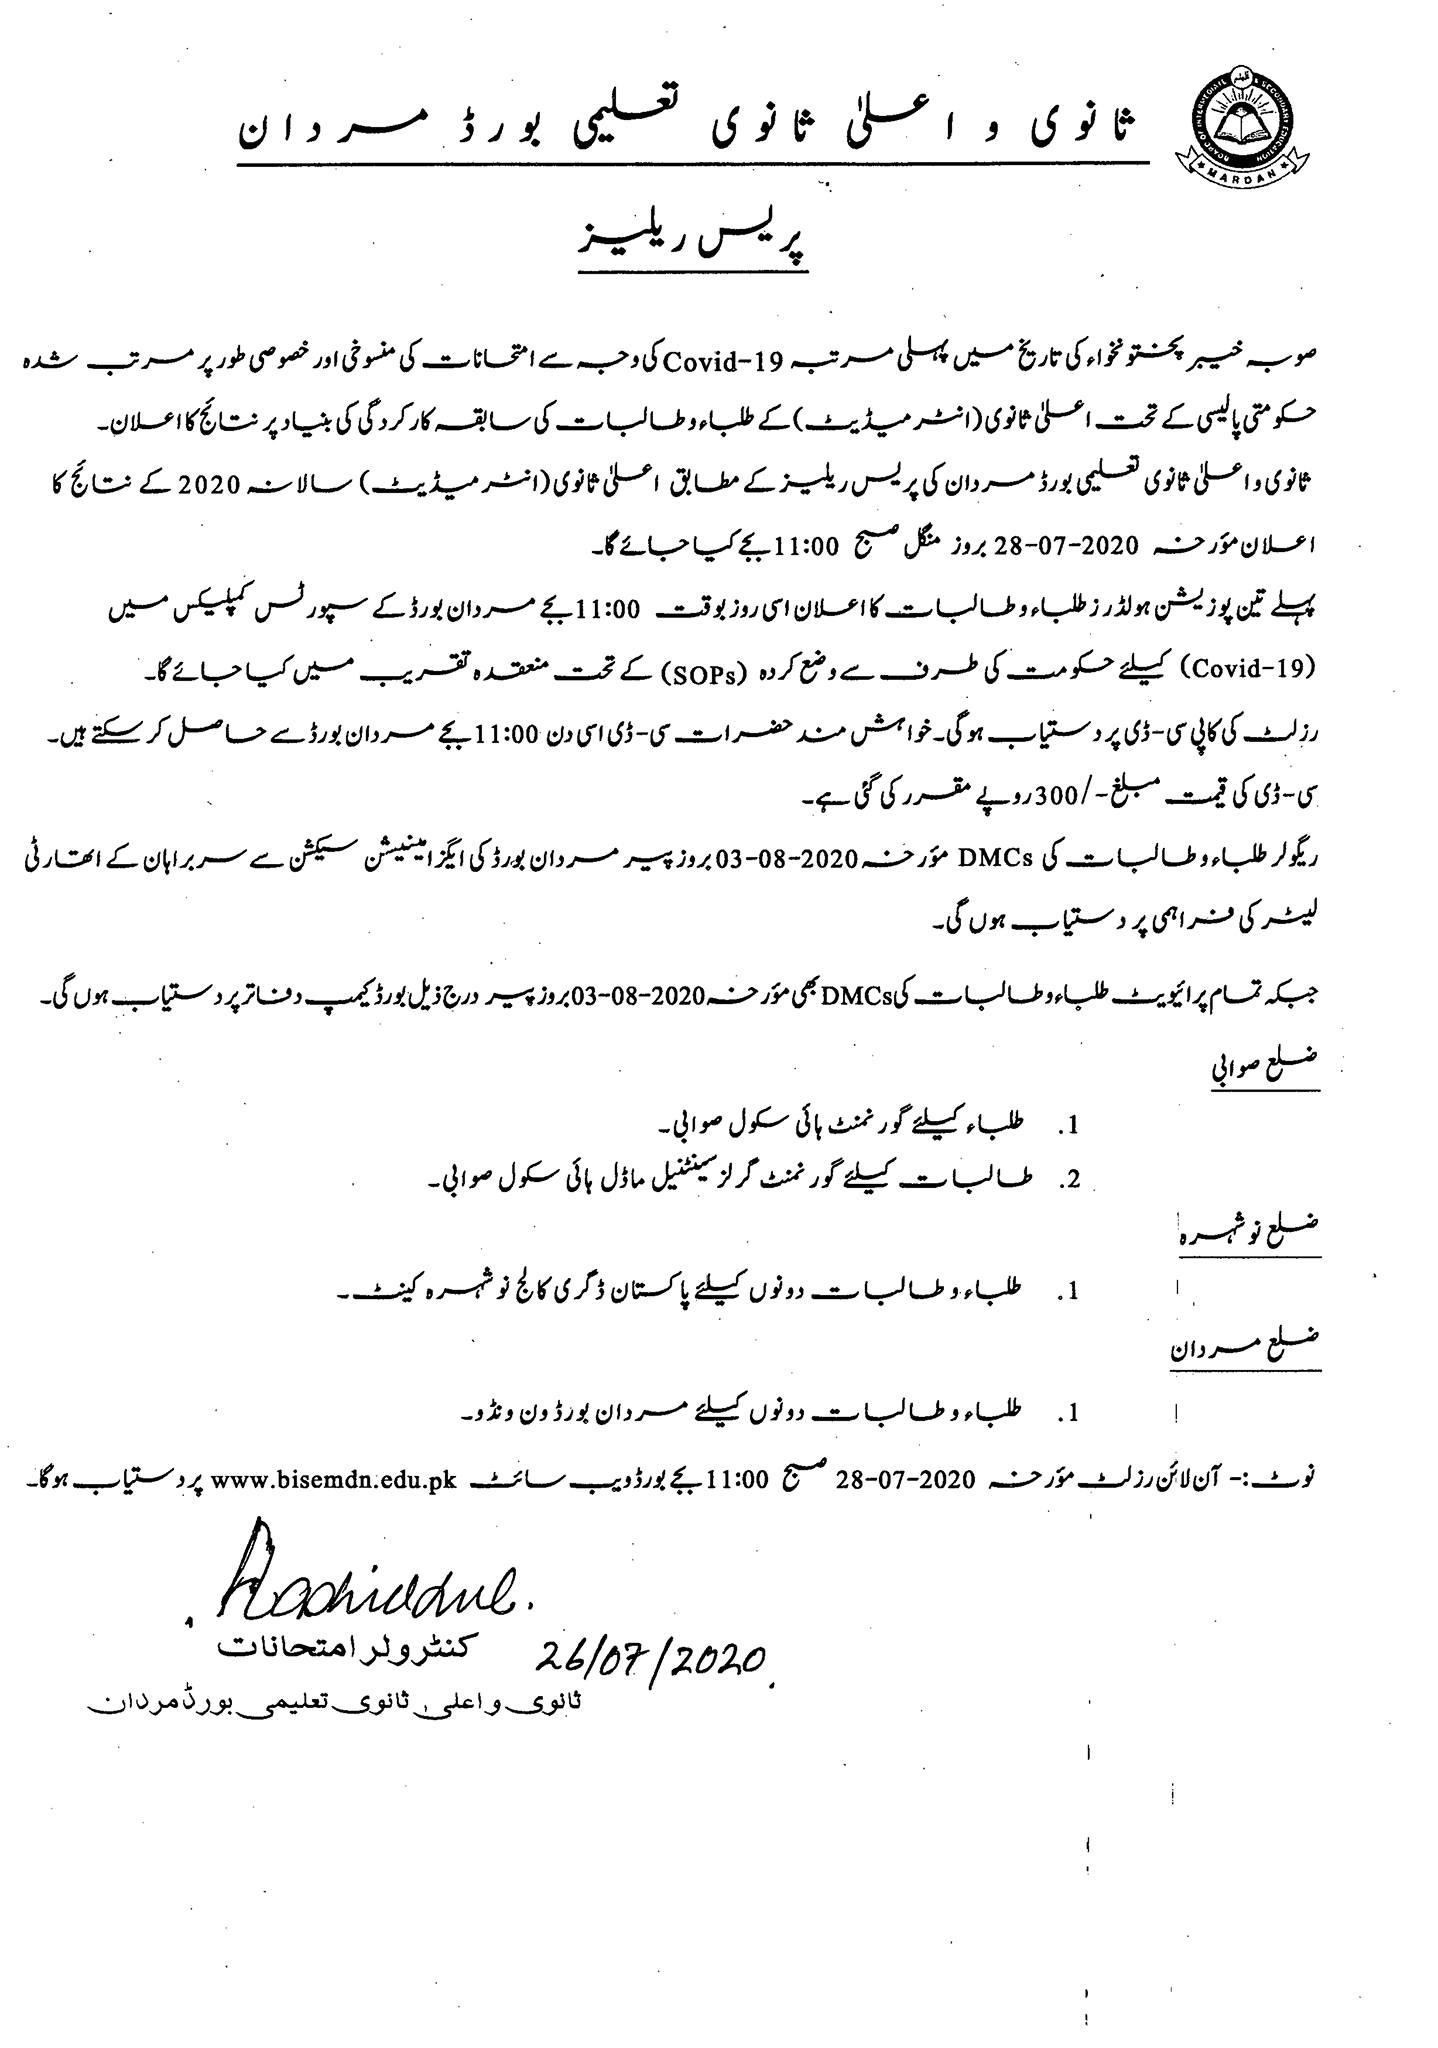 ثانوی و اعلیٰ ثانوی تعلیمی بورڈ مردان
BOARD OF INTERMEDIATE & SECONDARY EDUCATION
MARDAN
پریس ریلیز
صوبہ خیبر پختونخواء کی تاریخ میں پہلی مرتبہ Covid-19 کی وجہ سے امتحانات کی منسوخی اور خصوصی طور پر مرتب شدہ
حکومتی پالیسی کے تحت اعلیٰ ثانوی (انٹرمیڈیٹ) کے طلباء و طالبات کی سابقہ کارکردگی کی بنیاد پر نتائج کا اعلان۔
ثانوی و اعلیٰ ثانوی تعلیمی بورڈ مردان کی پریس ریلیز کے مطابق اعلیٰ ثانوی (انٹرمیڈیٹ) سالانہ 2020 کے نتائج کا
اعلان مؤرخہ 28-07-2020 بروز منگل صبح 11:00 بجے کیا جائے گا۔
پہلے تین پوزیشن ہولڈرز طلباء و طالبات کا اعلان اسی روز بوقت 11:00 بجے مردان بورڈ کے سپورٹس کمپلیکس میں
(Covid-19) کیلئے حکومت کی طرف سے وضع کردہ (SOPs) کے تحت منعقدہ تقریب میں کیا جائے گا۔
رزلٹ کی کاپی سی-ڈی پر دستیاب ہوگی۔ خواہش مند حضرات سی-ڈی اسی دن 11:00 بجے مردان بورڈ سے حاصل کر سکتے ہیں۔
سی-ڈی کی قیمت مبلغ -/300 روپے مقرر کی گئی ہے۔
ریگولر طلباء و طالبات کی DMCs مؤرخہ 03-08-2020 بروز پیر مردان بورڈ کی ایگزامینیشن سیکشن سے سربراہان کے اتھارٹی
لیٹر کی فراہمی پر دستیاب ہوں گی۔
جبکہ تمام پرائیویٹ طلباء و طالبات کی DMCs بھی مؤرخہ 03-08-2020 بروز پیر درج ذیل بورڈ کیمپ دفاتر پر دستیاب ہوں گی۔
ضلع صوابی
1. طلباء کیلئے گورنمنٹ ہائی سکول صوابی۔
2. طالبات کیلئے گورنمنٹ گرلز سینٹینیل ماڈل ہائی سکول صوابی۔
ضلع نوشہرہ
1. طلباء و طالبات دونوں کیلئے پاکستان ڈگری کالج نوشہرہ کینٹ۔
ضلع مردان
1. طلباء و طالبات دونوں کیلئے مردان بورڈ ون ونڈو۔
نوٹ:- آن لائن رزلٹ مؤرخہ 28-07-2020 صبح 11:00 بجے بورڈ ویب سائٹ www.bisemdn.edu.pk پر دستیاب ہوگا۔
کنٹرولر امتحانات 26/07/2020
ثانوی و اعلی ثانوی تعلیمی بورڈ مردان